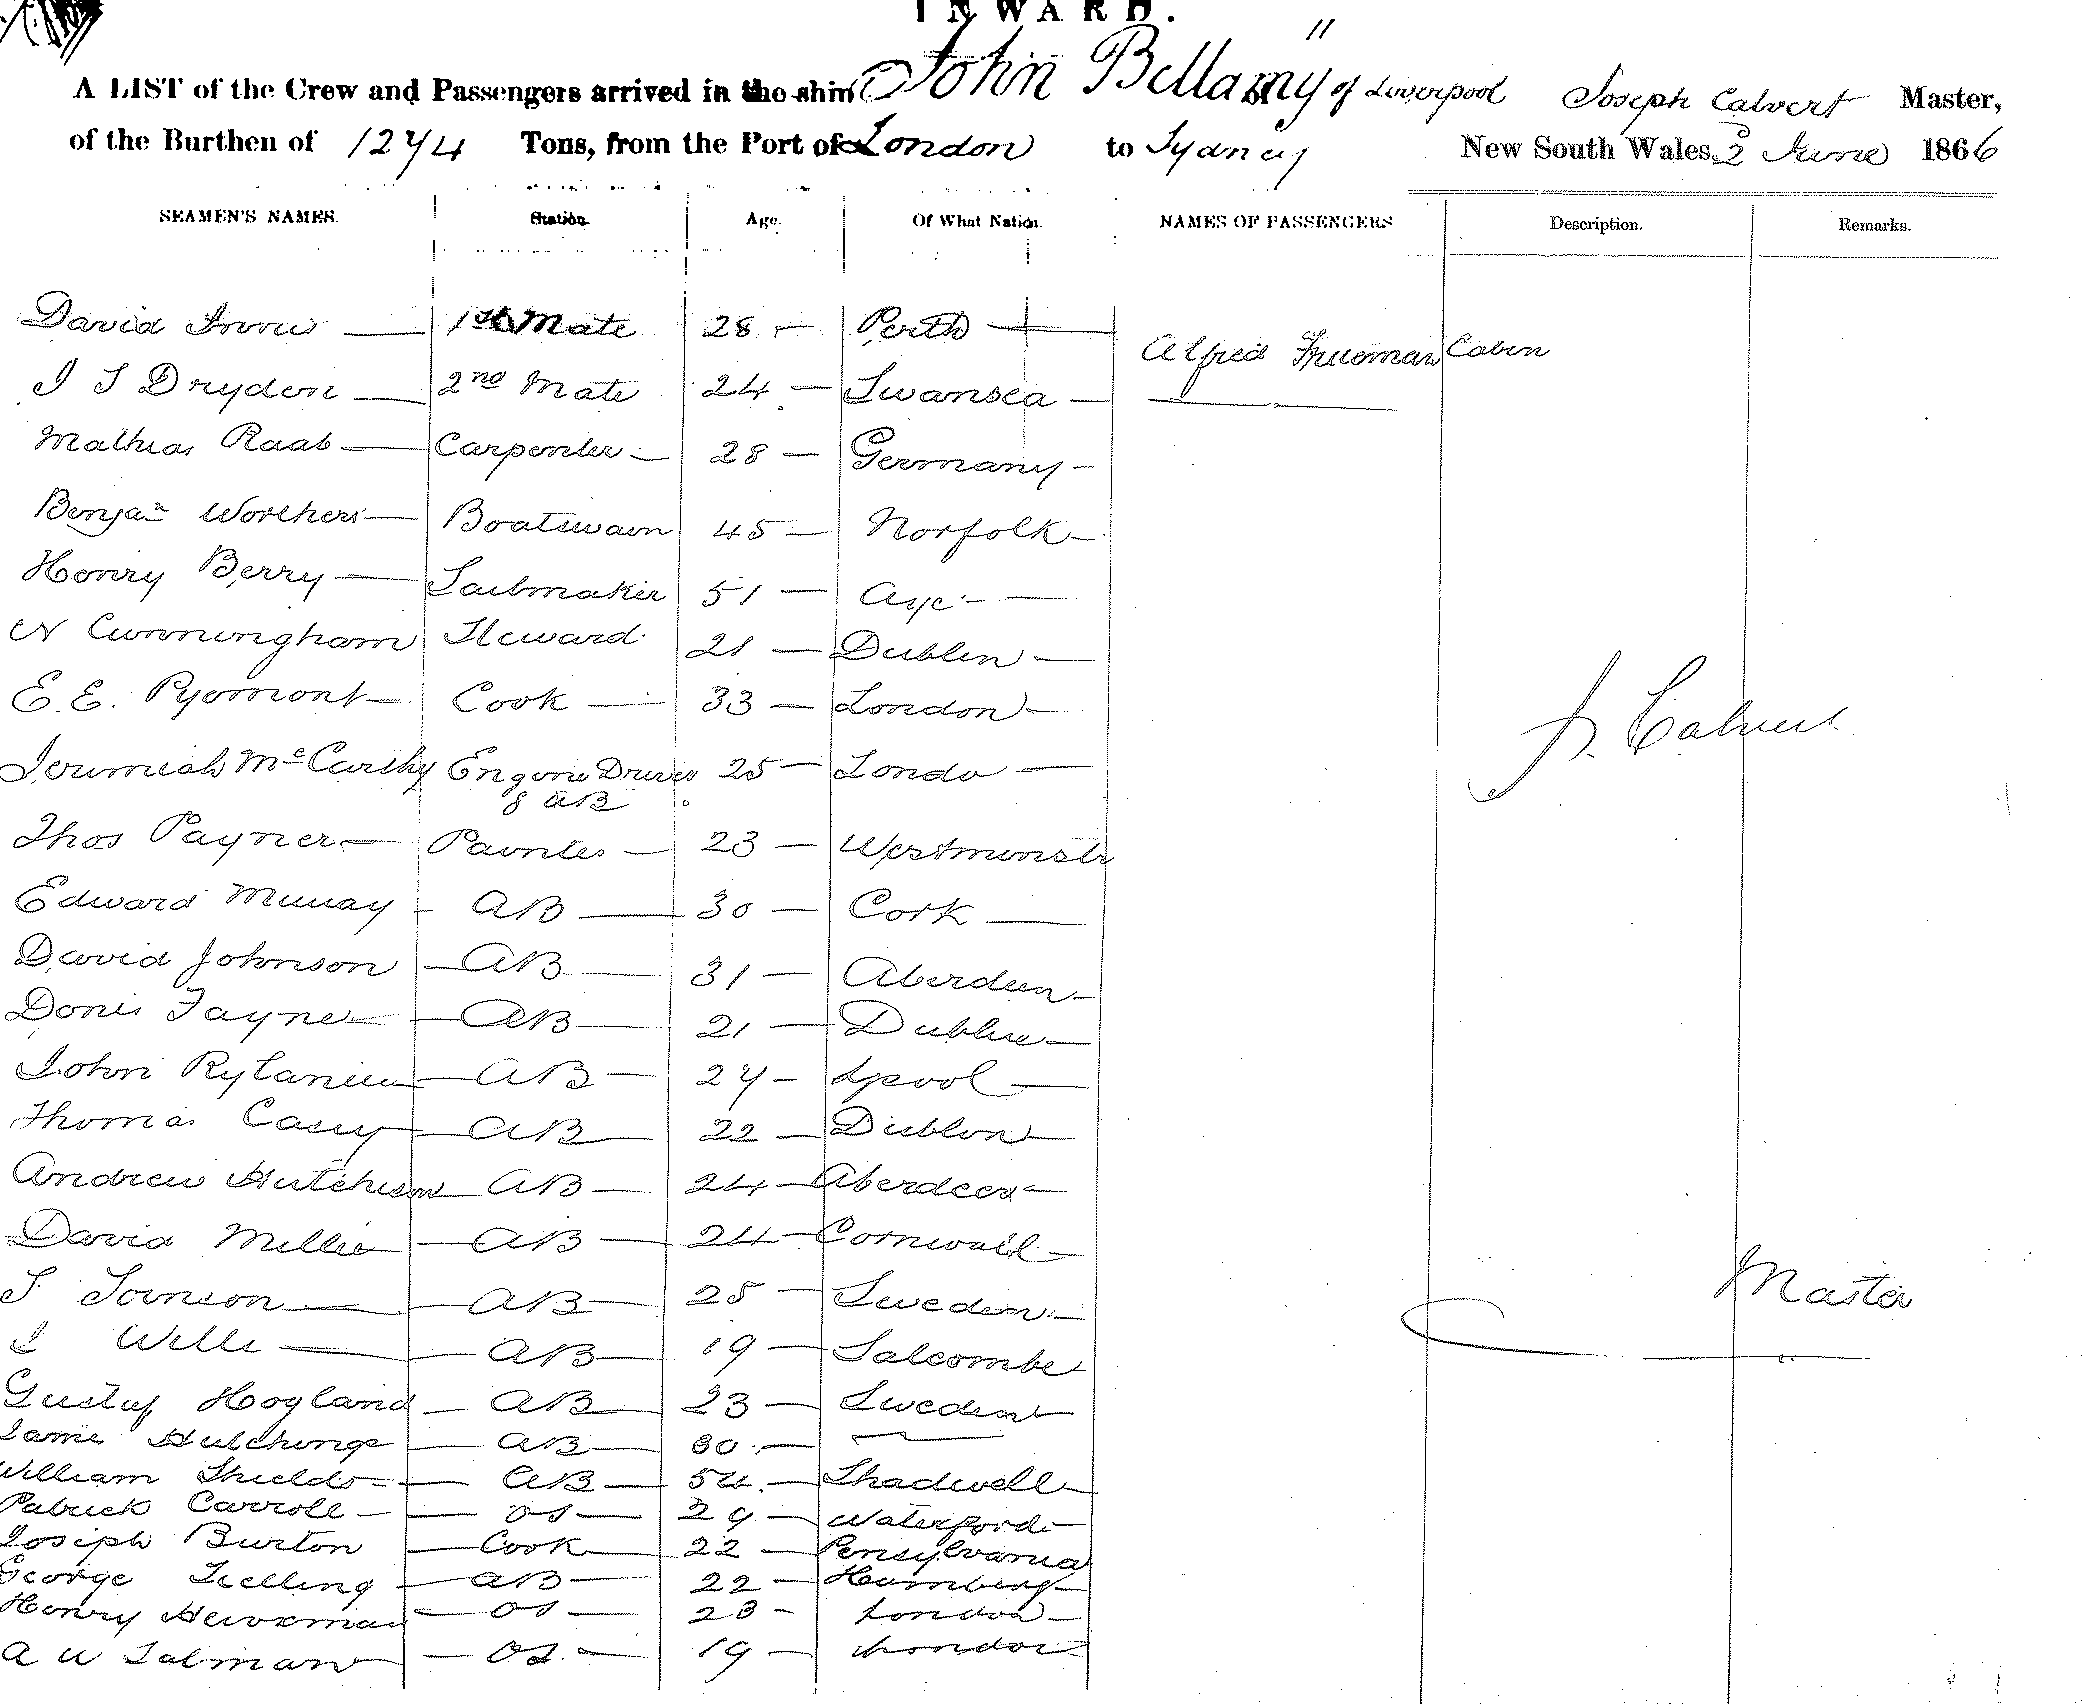 INWARD.
A LIST of the Crew and Passengers arrived in the ship "John Bellamy" of Liverpool Joseph Calvert Master,
of the Burthen of 1274 Tons, from the Port of London to Sydney New South Wales, 2 June 1866
SEAMEN'S NAMES. Station. Age. Of What Nation. NAMES OF PASSENGERS Description. Remarks.
David 1st Mate 28 - Perth
Alfred Freeman Cabin
J S Dryden 2nd Mate 24 - Swansea -
Mathias Raab Carpenter - 28 - Germany -
Benjan Worthers Boatswain 45 - Norfolk -
Henry Berry Sailmaker 51 -
N Cunningham Steward 21 - Dublin -
E. E. Pyemont Cook 33 - London -
Jeremiah McCarthy Engine Driver 25 - Londo -
& AB
Thos Payner Painter - 23 - Westminstr
Edward Murray - AB 30 - Cork
David Johnson AB 31 - Aberdeen -
Denis Tayne AB 21 - Dublin -
John AB 27 - Lpool
Thomas Casey AB 22 - Dublin
Andrew Hutchison AB 24 - Aberdeen -
David Miller AB 24 - Cornwall -
S AB 25 - Sweden -
J Wills AB 19 - Salcombe
Gustaf Hogland AB 23 - Sweden
James Hutchings AB 30 -
William Shields AB 54 - Shadwell
Patrick Carroll OS 29 - Waterford -
Joseph Burton Cook 22 - Pensylvania
George AB 22 - Hamberg
Henry OS 23 - London -
A W Salman OS 19 - London
J. Calvert
Master